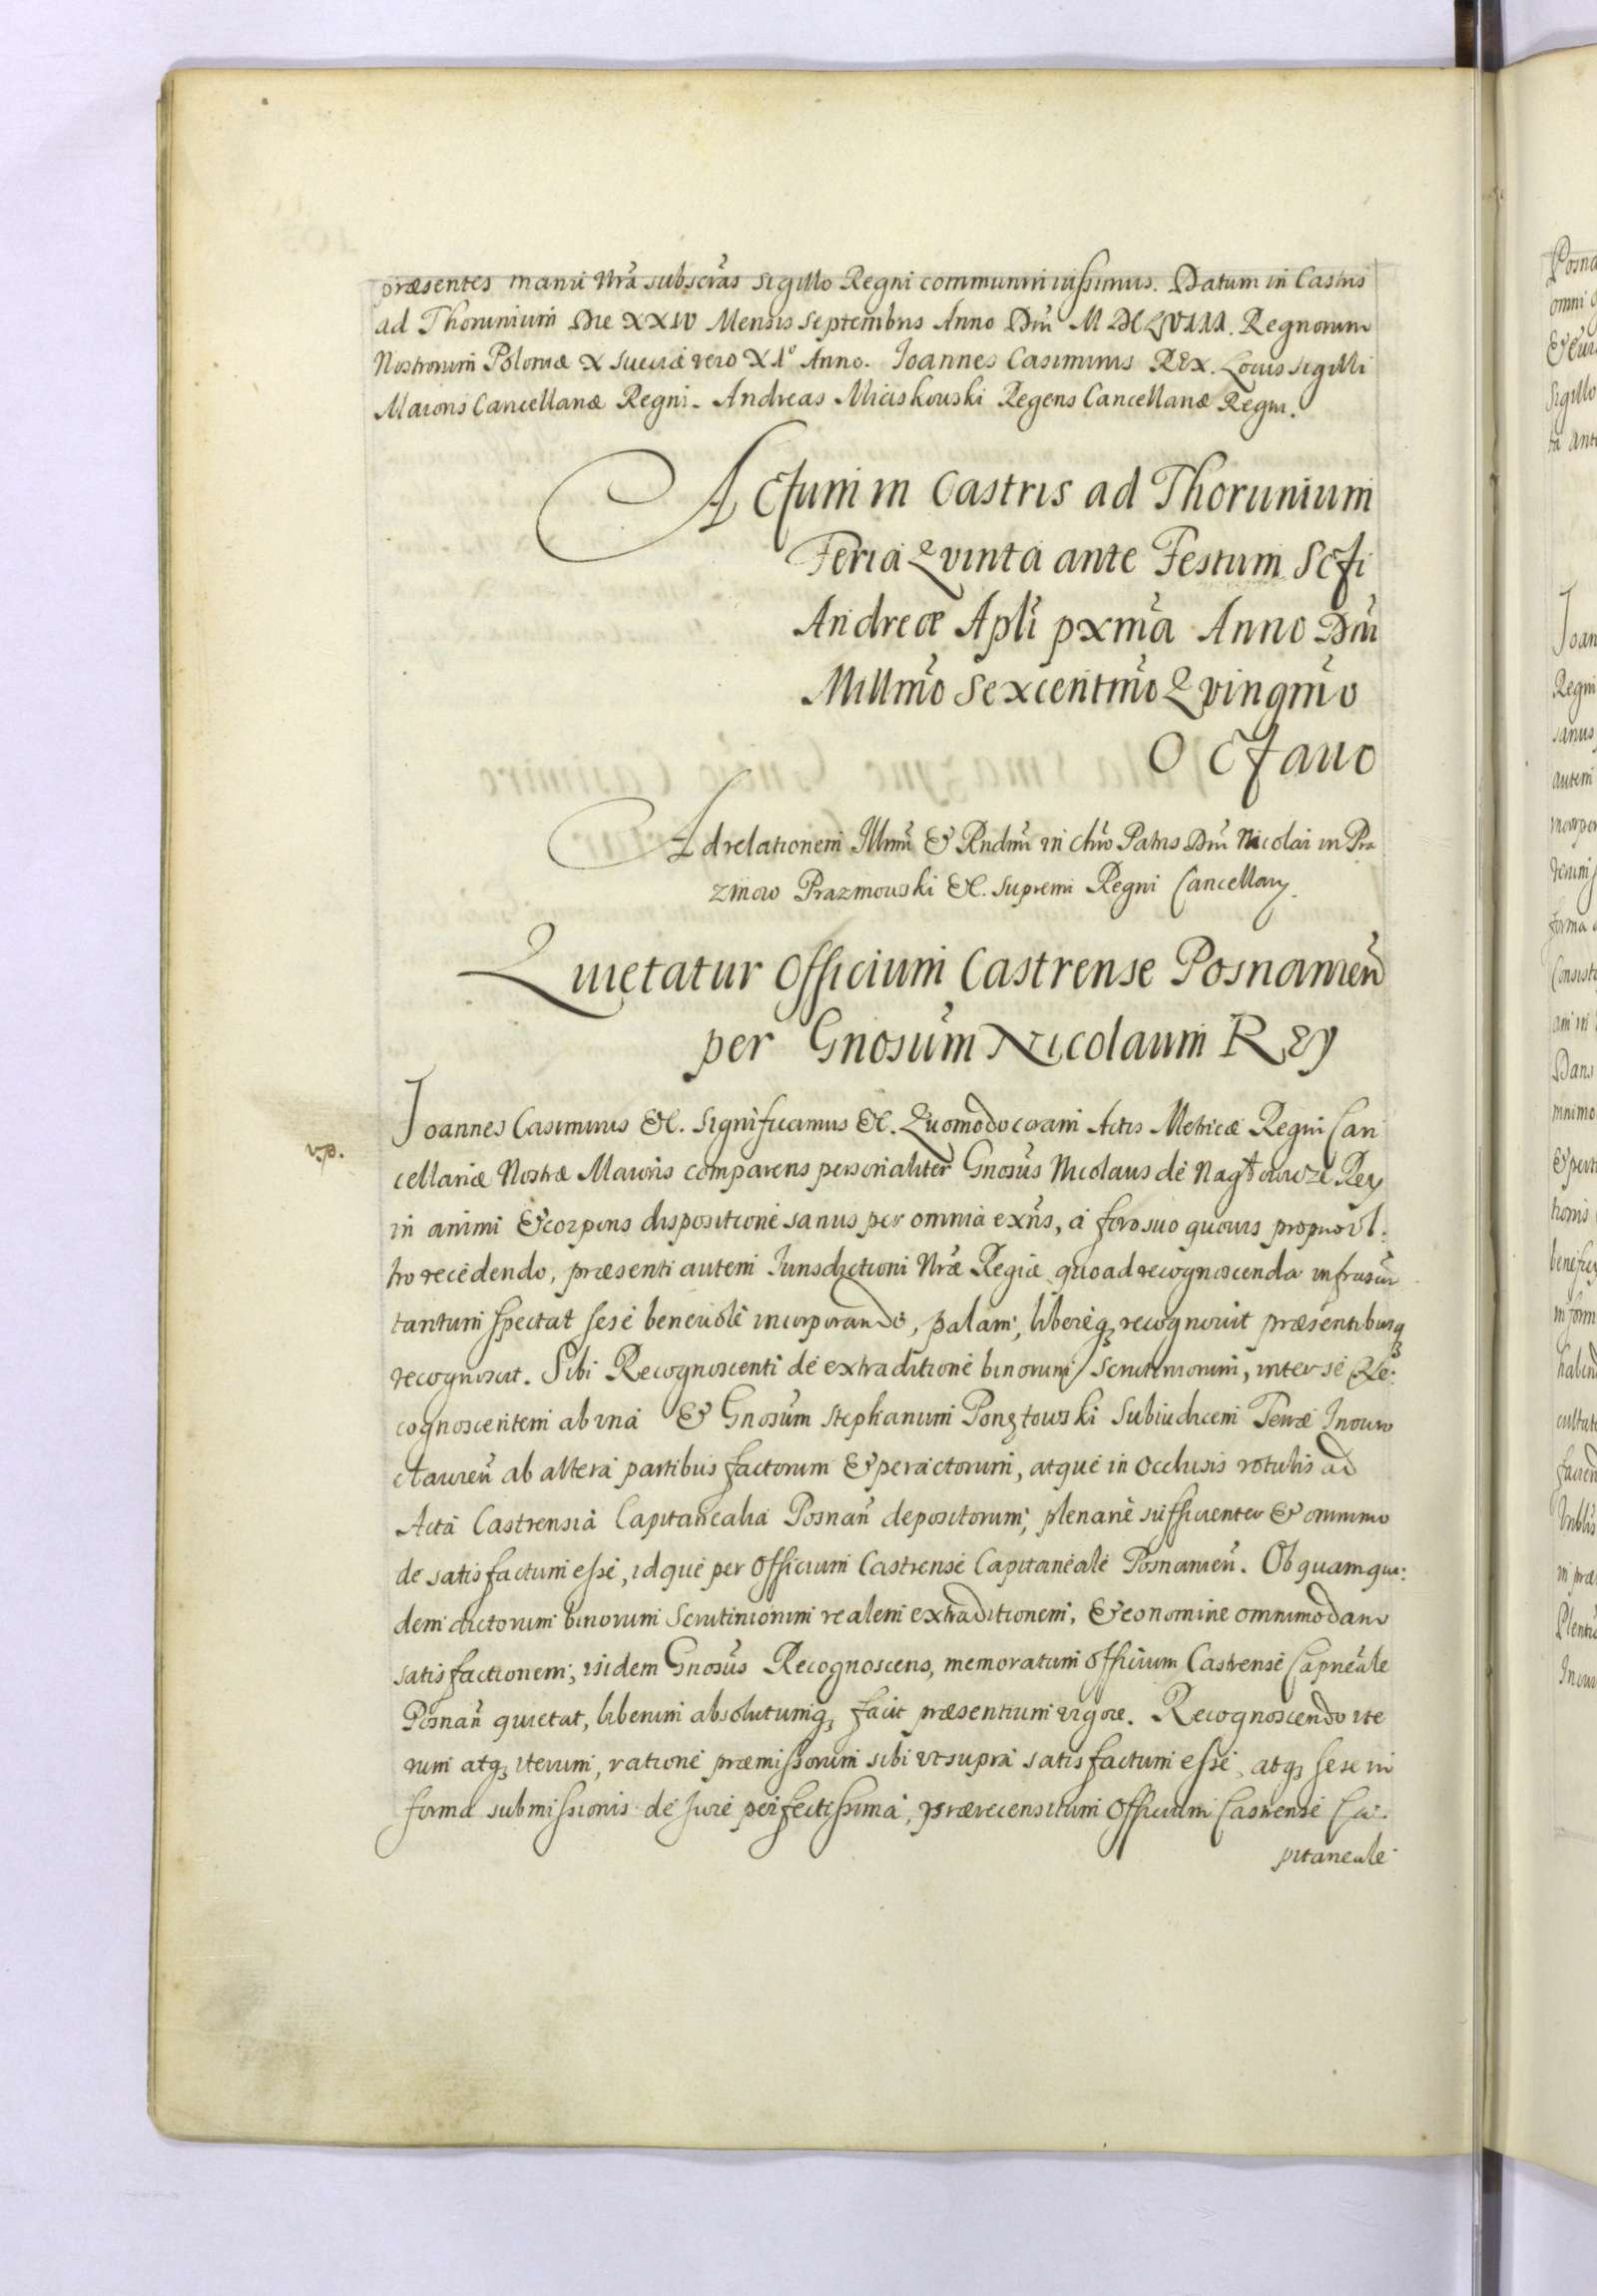 præsentes manu Nrã subscrãs sigillo Regni communiri iussimus. Datum in Castris
ad Thorunium Die XXIV Mensis Septembris Anno Dñi MDCLVIII. Regnorum
Nostrorum Poloniæ X Sueciæ vero XI° Anno. Ioannes Casimirus REX. Locus sigilli
Maioris Cancellariæ Regni. Andreas Miaskowski Regens Cancellariæ Regni.
Actum in Castris ad Thorunium
Feria Qvinta ante Festum Scti
Andreæ Apli pxma Anno Dñi
Millmo Sexcentmo Qvinqmo
Octauo
Ad relationem Illmi & Rndmi in Chro Patris Dñi Nicolai in Pra
zmow Prazmowski &c. Supremi Regni Cancellarij.
Quietatur Officium Castrense Posnanien
per Gnosum Nicolaum Rey
v.p.
Ioannes Casimirus &c. Significamus &c. Quomodo coram Actis Metricæ Regni Can
cellariæ Nostræ Maioris comparens personaliter Gnosus Nicolaus de Nagłowize Rey
in animi & corporis dispositione sanus per omnia exñs, a foro suo quouis proprio vl:
tro recedendo, præsenti autem Iurisdictioni Nræ Regiæ quoad recognoscenda infrascr
tantum spectat sese beneuole incorporando, palam, libereq, recognouit præsentibusq
recognoscit. Sibi Recognoscenti de extraditione binorum Scrutiniorum, inter se Re:
cognoscentem ab vna & Gnosum Stephanum Ponętowski Subiudicem Terræ Inouw
cłauien ab altera partibus factorum & peractorum, atque in occlusis rotulis ad
Acta Castrensia Capitanealia Posnan depositorum, plenarie sufficienter & omnimo
de satisfactum esse, idque per Officium Castrense Capitaneale Posnanien. Ob quam qui:
dem dictorum binorum Scrutiniorum realem extraditionem, & eo nomine omnimodam
satisfactionem, isidem Gnosus Recognoscens, memoratum Officium Castrense Capneale
Posnan quietat, liberum absolutumq, facit præsentium vigore. Recognoscendo ite
rum atq, iterum, ratione præmissorum sibi vt supra satisfactum esse, atq, sese in
forma submissionis de Iure perfectissima, prærecensitum Officium Castrense Ca:
pitaneale